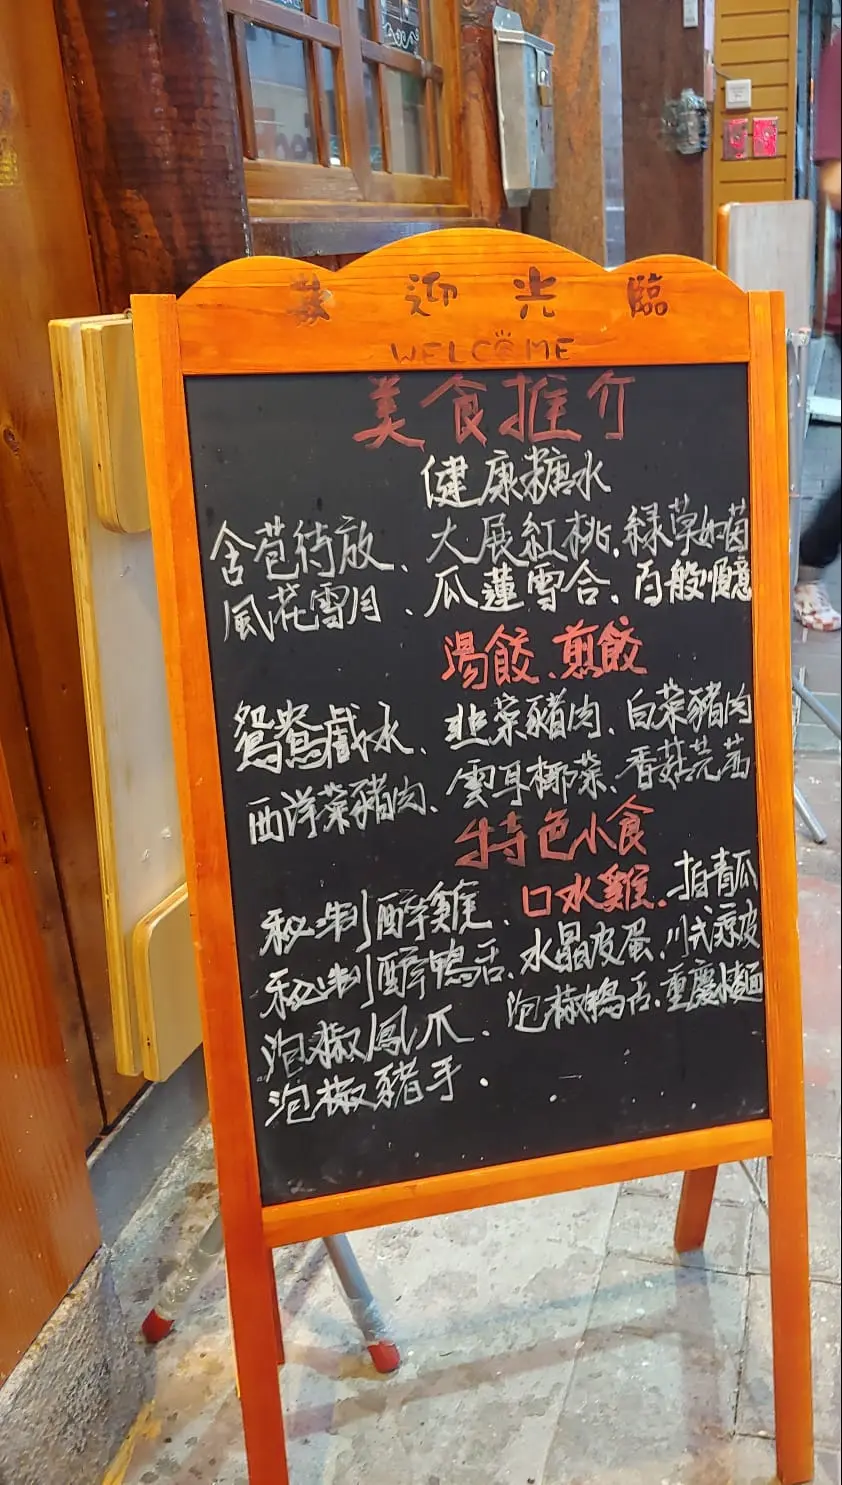 歡迎光臨
WELCOME
美食推介
健康糖水
含苞待放、大展紅桃、綠草如茵
風花雪月、瓜蓮雪合、百般順意
湯餃、煎餃
鴛鴦戲水、韭菜豬肉、白菜豬肉
西洋菜豬肉、雲耳椰菜、香菇芫茜
特色小食
秘制醉雞、口水雞、拍青瓜
秘制醉鴨舌、水晶皮蛋、川式涼皮
泡椒鳳爪、泡椒鴨舌、重慶小麵
泡椒豬手.